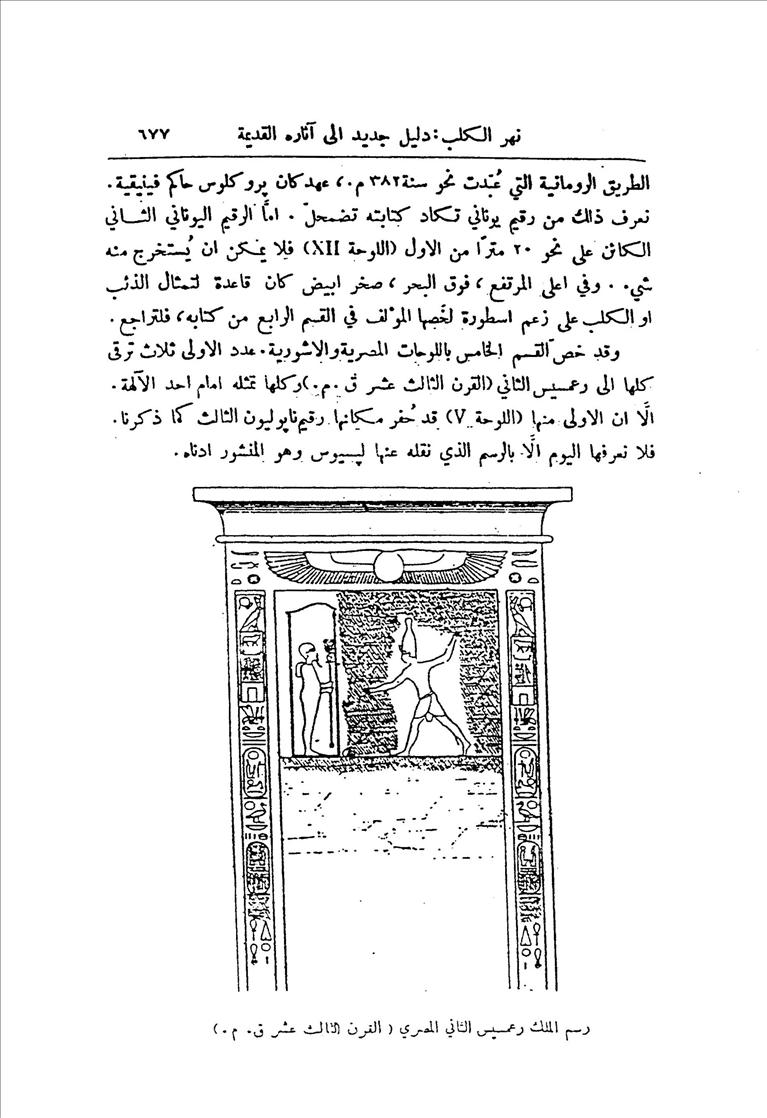 نهر الكلب: دليل جديد الى آثاره القديمة ٦٧٧
الطريق الرومانية التي عُبّدت نحو سنة ٣٨٢ م.، عهد كان پروكلوس حاكم فينيقية.
نعرف ذلك من رقيم يوناني تكاد كتابته تضمحلّ. امَّا الرقيم اليوناني الثاني
الكائن على نحو ٢٠ مترًا من الاول (اللوحة XII) فلا يمكن ان يُستخرج منه
شيء. وفي اعلى المرتفع، فوق البحر، صخر ابيض كان قاعدة لتمثال الذئب
او الكلب على زعم اسطورة لخَّصها المؤلف في القسم الرابع من كتابه، فلتراجع.
وقد خصّ القسم الخامس باللوحات المصرية والاشورية. عدد الاولى ثلاث ترقى
كلها الى رعمسيس الثاني (القرن الثالث عشر ق. م.) وكلها تمثله امام احد الآلهة.
الَّا ان الاولى منها (اللوحة V) قد حُفر مكانها رقيم ناپوليون الثالث كما ذكرنا.
فلا نعرفها اليوم الَّا بالرسم الذي نقله عنها لپسيوس وهو المنشور ادناه.
رسم الملك رعمسيس الثاني المصري (القرن الثالث عشر ق. م.)